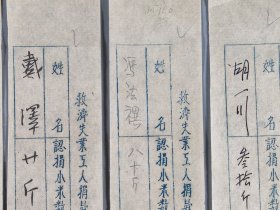 姓名 認捐小米數
胡一川 叁拾斤
救濟失業工人捐
姓名 認捐小米數
馮法禩 八十斤
救濟失業工人捐
姓名 認捐小米數
戴澤 廿斤